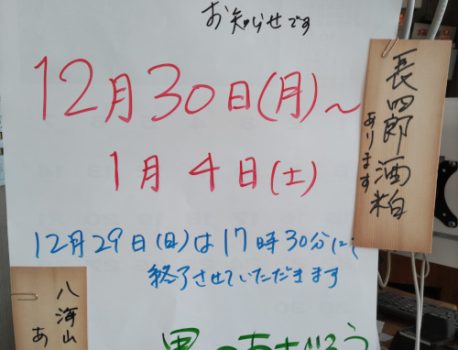 お知らせです
12月30日(月)~
1月4日(土)
12月29日(日)は17時30分に
終了させていただきます
長四郎酒粕
あります
八海山
あ